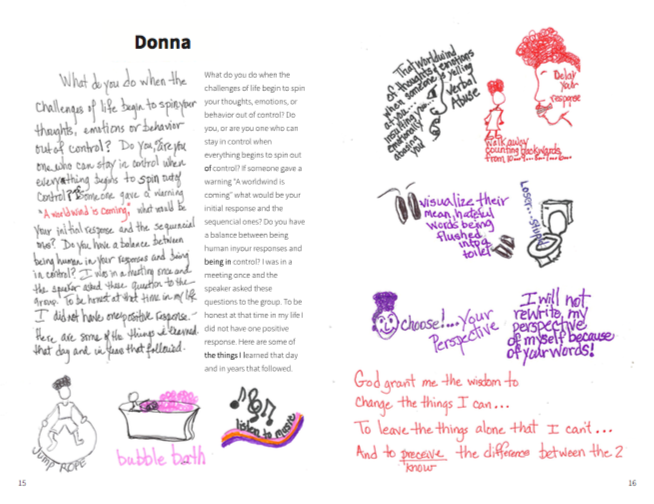 Donna
What do you do when the
challenges of life begin to spin your
thoughts, emotions or behavior
out of control? Do you, are you
one who can stay in control when
everything begins to spin out of
control? If someone gave a warning
"A worldwind is coming," what would be
your initial response and the sequencial
ones? Do you have a balance between
being human in your responses and being
in control? I was in a meeting once and
the speaker asked these question to the
group. To be honest at that time in my life
I did not have one positive response.
Here are some of the things I learned
that day and in years that followed.
What do you do when the
challenges of life begin to spin
your thoughts, emotions, or
behavior out of control? Do
you, or are you one who can
stay in control when
everything begins to spin out
of control? If someone gave a
warning "A worldwind is
coming" what would be your
initial response and the
sequencial ones? Do you have
a balance between being
human inyour responses and
being in control? I was in a
meeting once and the
speaker asked these
questions to the group. To be
honest at that time in my life I
did not have one positive
response. Here are some of
the things I learned that day
and in years that followed.
JUMP ROPE
bubble bath
listen to music
15
That worldwind
of thoughts & emotions
when someone is yelling
at you...
insulting you...
emotionally
abusing
you!
verbal
Abuse
Delay
your
response
walk away
counting backwards
from 10...9...8...7...6...
visualize their
mean, hateful
words being
flushed
into a
toilet
Loser...
choose!...your
Perspective
I will not
rewrite my
perspective
of myself because
of your words!
God grant me the wisdom to
change the things I can...
To leave the things alone that I can't...
And to preceive the difference between the 2
know
16